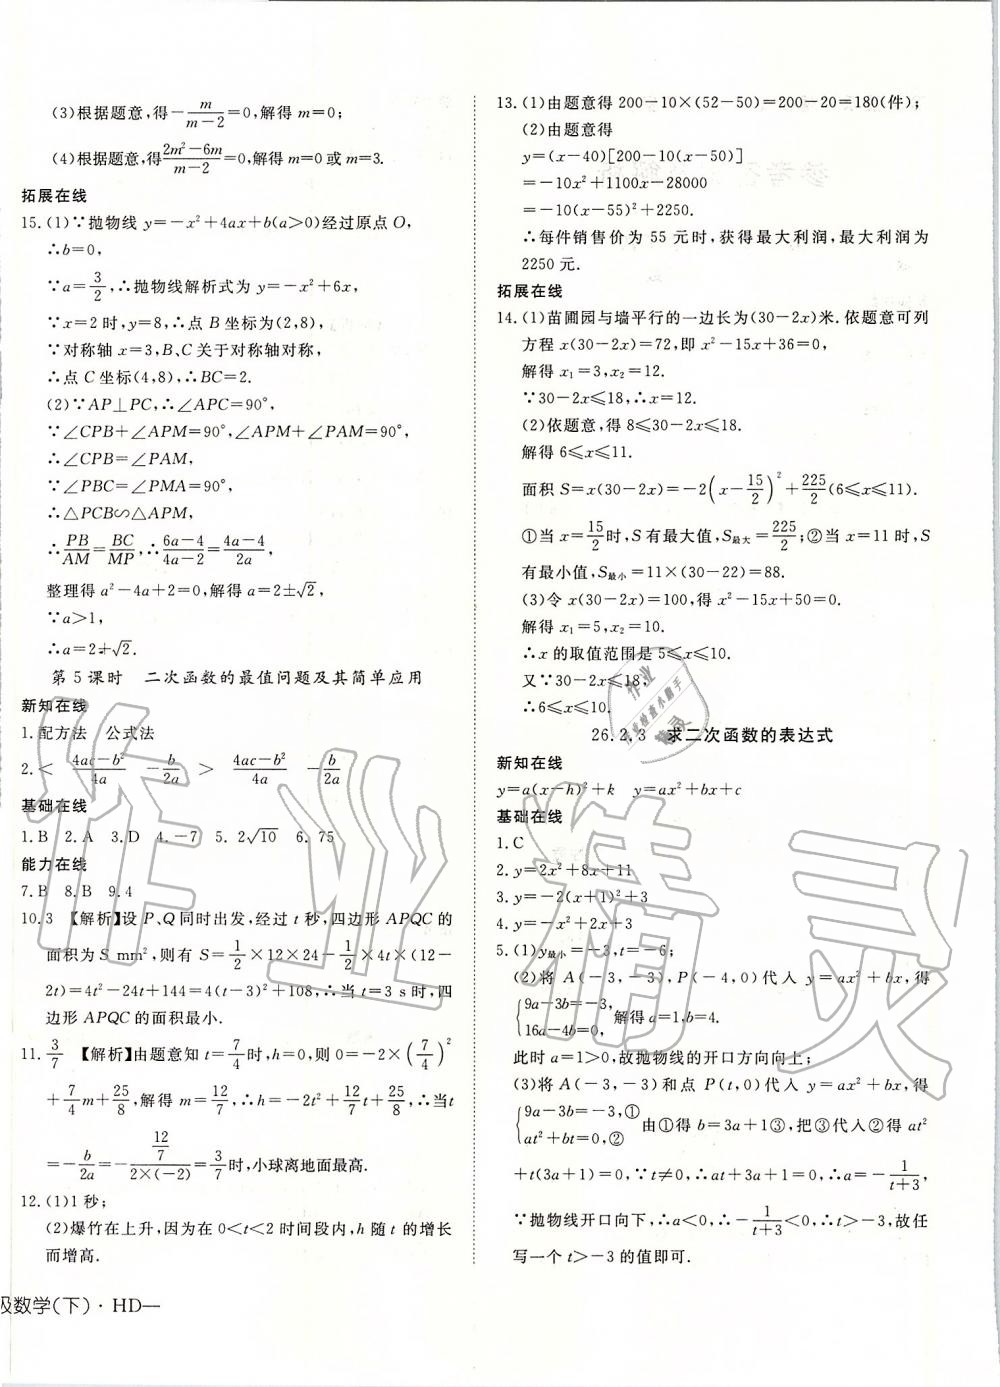 (3)根据题意,得-m/(m-2)=0,解得 m=0;
(4)根据题意,得(2m²-6m)/(m-2)=0,解得 m=0或m=3.
拓展在线
15.(1)∵抛物线 y=-x²+4ax+b(a>0)经过原点 O,
∴b=0,
∵a=3/2,∴抛物线解析式为 y=-x²+6x,
∵x=2时,y=8,∴点 B 坐标为(2,8),
∵对称轴 x=3,B、C 关于对称轴对称,
∴点 C 坐标(4,8),∴BC=2.
(2)∵AP⊥PC,∴∠APC=90°,
∵∠CPB+∠APM=90°,∠APM+∠PAM=90°,
∴∠CPB=∠PAM,
∵∠PBC=∠PMA=90°,
∴△PCB∽△APM,
∴PB/AM=BC/MP,∴(6a-4)/(4a-2)=(4a-4)/2a,
整理得 a²-4a+2=0,解得 a=2±√2,
∵a>1,
∴a=2+√2.
第 5 课时 二次函数的最值问题及其简单应用
新知在线
1.配方法 公式法
2.< (4ac-b²)/4a -b/2a > (4ac-b²)/4a -b/2a
基础在线
1.B 2.A 3.D 4.-7 5.2√10 6.75
能力在线
7.B 8.B 9.4
10.3 【解析】设 P、Q同时出发,经过 t 秒,四边形 APQC 的
面积为S mm²,则有 S=1/2×12×24-1/2×4t×(12-
2t)=4t²-24t+144=4(t-3)²+108,∴当 t=3 s时,四
边形 APQC 的面积最小.
11.3/7 【解析】由题意知 t=7/4时,h=0,则0=-2×(7/4)²
+7/4m+25/8,解得 m=12/7,∴h=-2t²+12/7t+25/8,∴当t
=-b/2a=-(12/7)/(2×(-2))=3/7时,小球离地面最高.
12.(1)1 秒;
(2)爆竹在上升,因为在 0<t<2 时间段内,h 随 t 的增长
而增高.
级数学(下)·HD—
13.(1)由题意得 200-10×(52-50)=200-20=180(件);
(2)由题意得
y=(x-40)[200-10(x-50)]
=-10x²+1100x-28000
=-10(x-55)²+2250.
∴每件销售价为 55 元时,获得最大利润,最大利润为
2250 元.
拓展在线
14.(1)苗圃园与墙平行的一边长为(30-2x)米.依题意可列
方程 x(30-2x)=72,即 x²-15x+36=0,
解得 x₁=3,x₂=12.
∵30-2x≤18,∴x=12.
(2)依题意,得 8≤30-2x≤18.
解得 6≤x≤11.
面积 S=x(30-2x)=-2(x-15/2)²+225/2(6≤x≤11).
①当 x=15/2时,S 有最大值,S最大=225/2;②当 x=11 时,S
有最小值,S最小=11×(30-22)=88.
(3)令 x(30-2x)=100,得 x²-15x+50=0.
解得 x₁=5,x₂=10.
∴x 的取值范围是 5≤x≤10.
又∵30-2x≤18,
∴6≤x≤10.
26.2.3 求二次函数的表达式
新知在线
y=a(x-h)²+k y=ax²+bx+c
基础在线
1.C
2.y=2x²+8x+11
3.y=-2(x+1)²+3
4.y=-x²+2x+3
5.(1)y最小=-3,t=-6;
(2)将 A(-3,-3),P(-4,0)代入 y=ax²+bx,得
{9a-3b=-3, 16a-4b=0, 解得 a=1,b=4.
此时 a=1>0,故抛物线的开口方向向上;
(3)将 A(-3,-3)和点 P(t,0)代入 y=ax²+bx,得
{9a-3b=-3,① at²+bt=0,② 由①得 b=3a+1③,把③代入②得 at²
+t(3a+1)=0,∵t≠0,∴at+3a+1=0,∴a=-1/(t+3),
∵抛物线开口向下,∴a<0,∴-1/(t+3)<0,∴t>-3,故任
写一个 t>-3 的值即可.
作业精灵